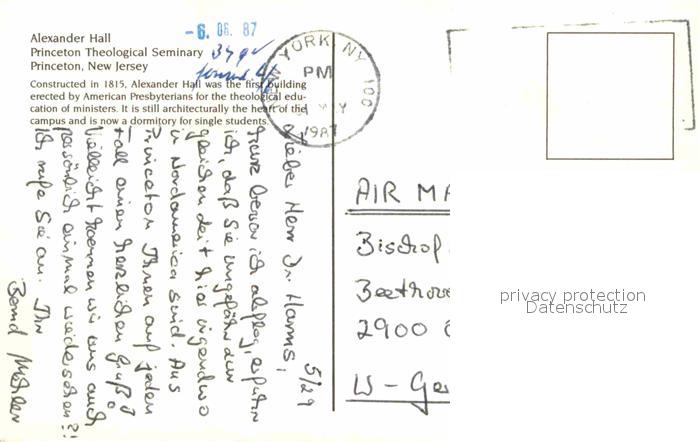 Alexander Hall
Princeton Theological Seminary
Princeton, New Jersey
Constructed in 1815, Alexander Hall was the first building
erected by American Presbyterians for the theological edu-
cation of ministers. It is still architecturally the heart of the
campus and is now a dormitory for single students.
-6. 06. 87
YORK NY 100
PM
1987
5/29
Lieber Herr Dr. Harms,
kurz bevor ich abflog, erfuhr
ich, daß Sie ungefähr zur
gleichen Zeit hier irgendwo
in Nordamerica sind. Aus
Princeton Ihnen auf jeden
Fall einen herzlichen Gruß!
Vielleicht können wir uns auch
persönlich einmal wiedersehen?!
Ich rufe Sie an. Ihr
Bernd
AIR MA
Bischof
Beethove
2900
W-Ge
privacy protection
Datenschutz